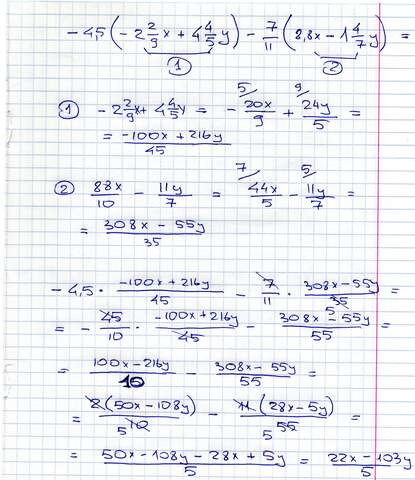 -4,5(-2 2/9 x + 4 4/5 y) - 7/11 (8,8x - 1 4/7 y) =
① ②
① -2 2/9 x + 4 4/5 y = - 20x/9 + 24y/5 =
5 9
= -100x + 216y / 45
② 88x/10 - 11y/7 = 44x/5 - 11y/7 =
7 5
= 308x - 55y / 35
-4,5 · -100x + 216y / 45 - 7/11 · 308x - 55y / 35 =
5
= - 45/10 · -100x + 216y / 45 - 308x - 55y / 55 =
= 100x - 216y / 10 - 308x - 55y / 55 =
= 2(50x - 108y) / 5 10 - 11(28x - 5y) / 5 55 =
= 50x - 108y - 28x + 5y / 5 = 22x - 103y / 5